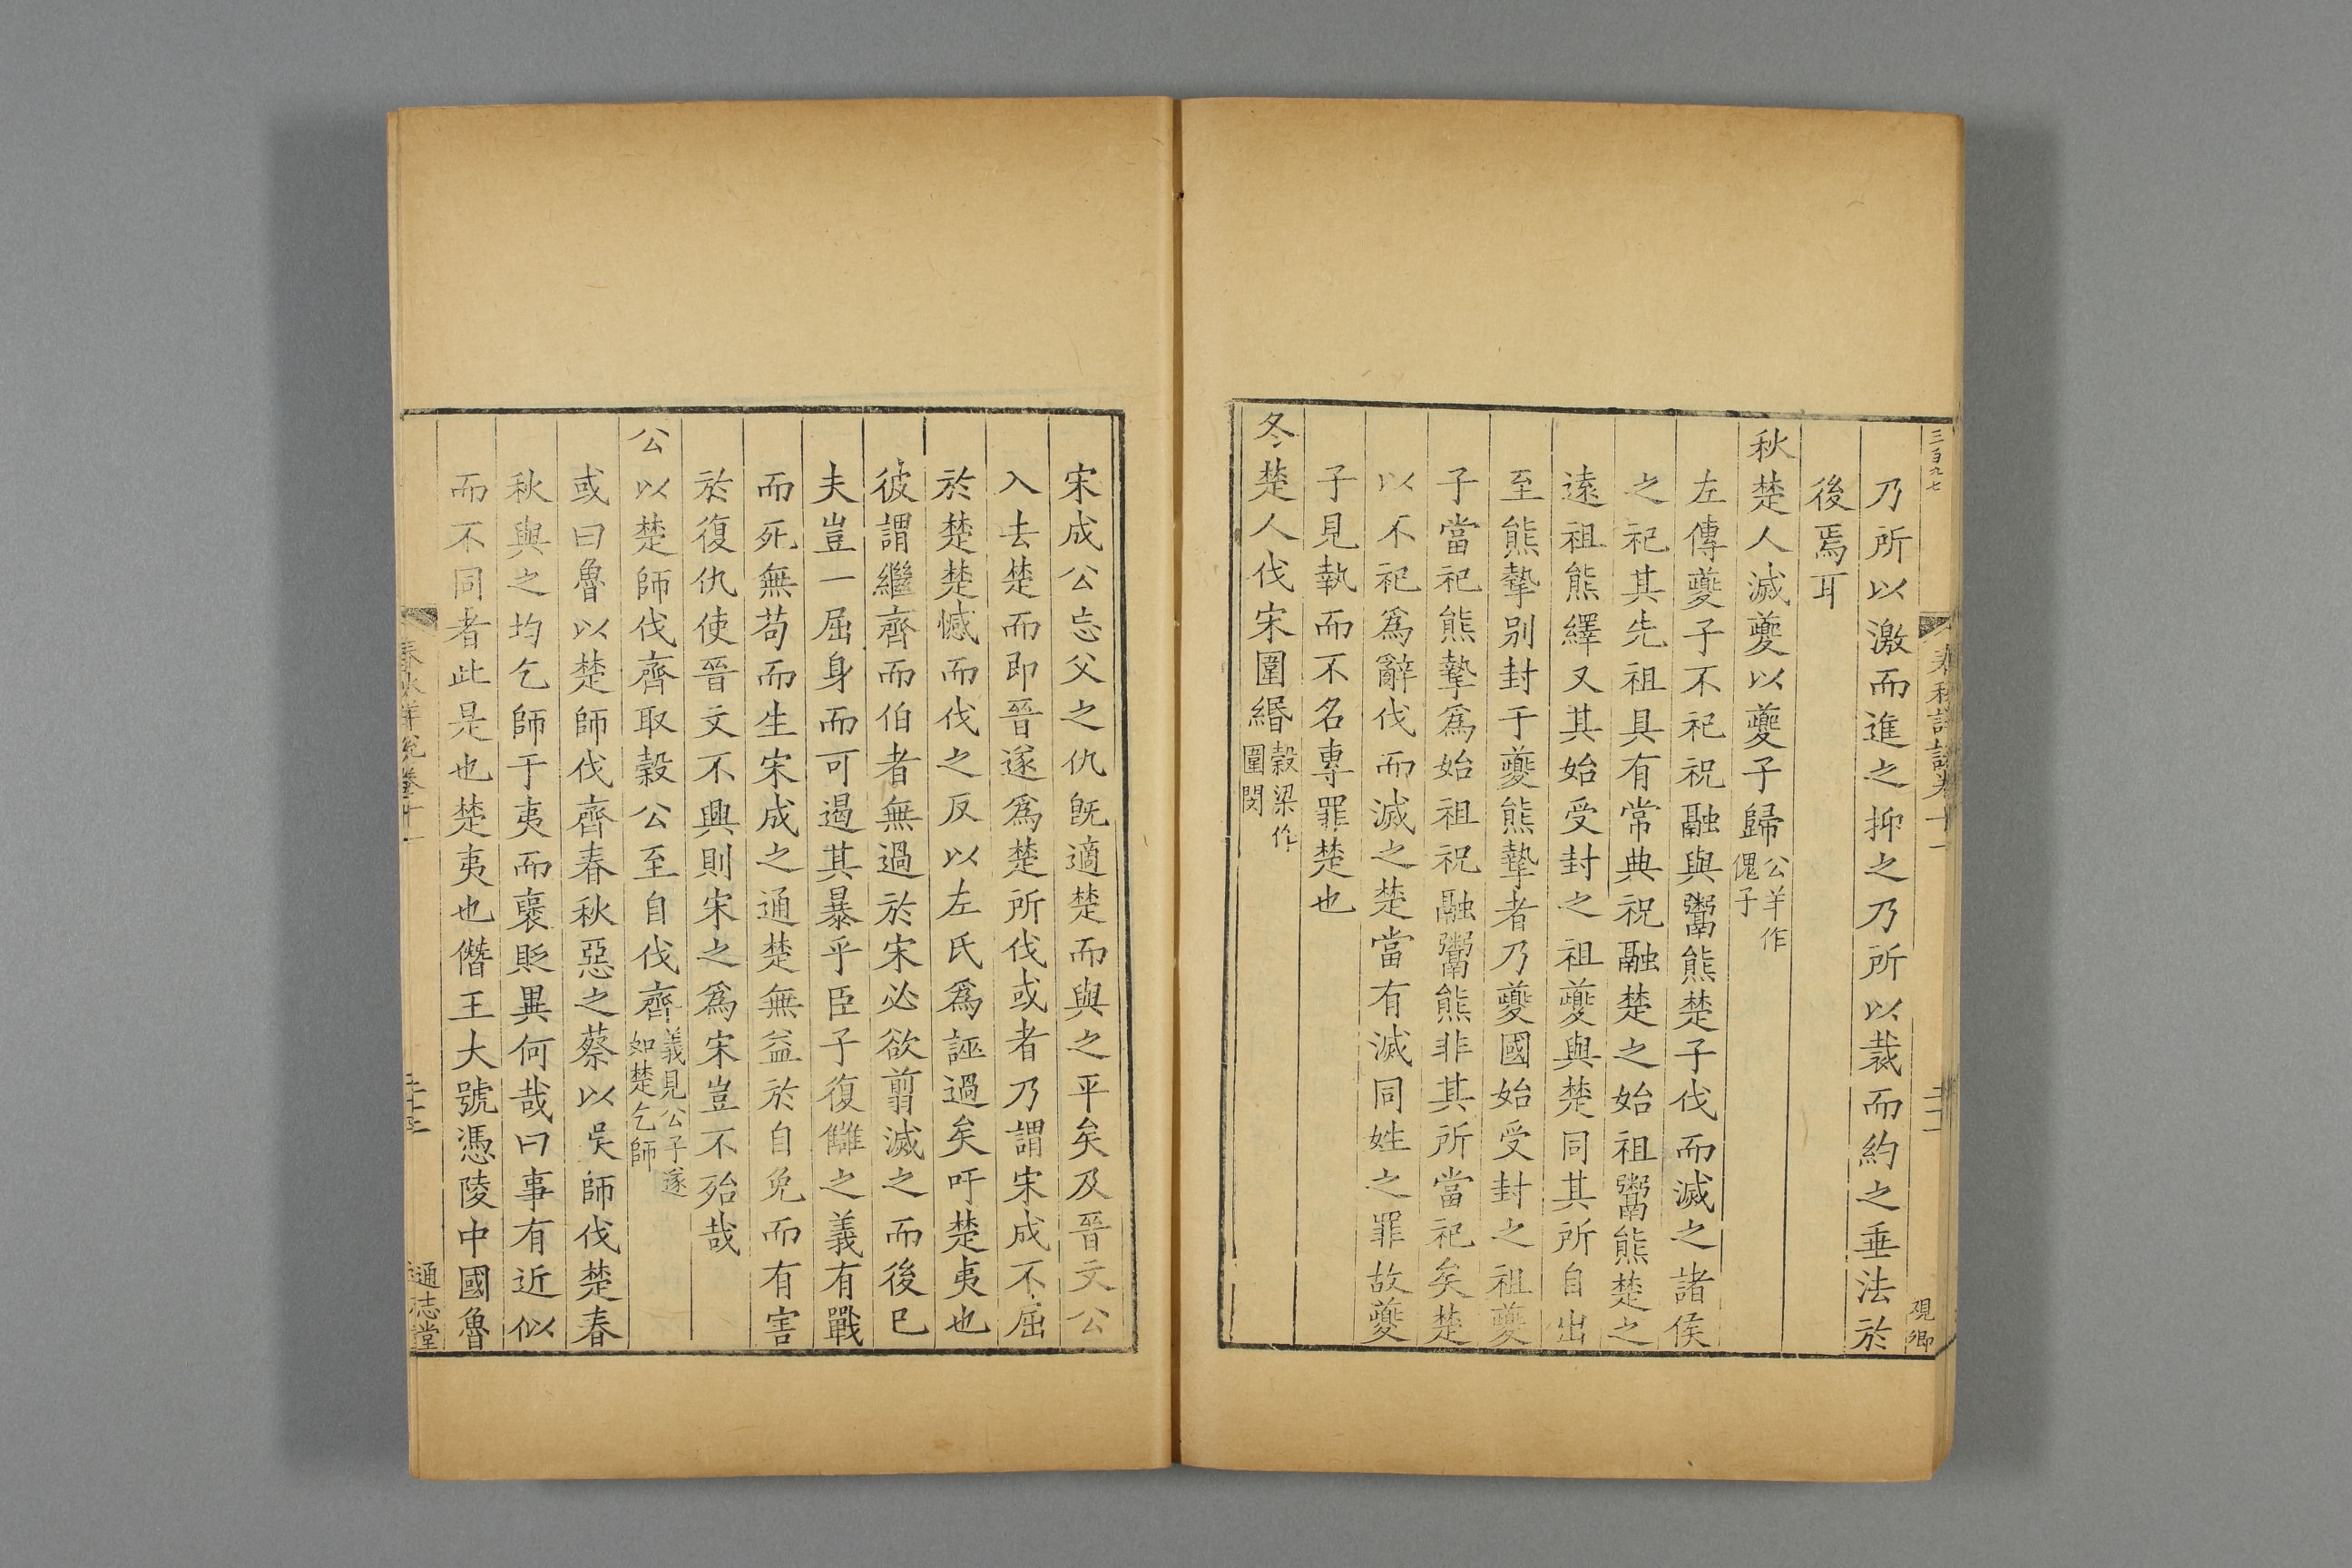 三百九七
春秋詳說卷十一
二十二
覌卿
乃所以激而進之抑之乃所以裁而約之垂法於
後焉耳
秋楚人滅夔以夔子歸公羊作
隗子
左傳夔子不祀祝融與鬻熊楚子伐而滅之諸侯
之祀其先祖具有常典祝融楚之始祖鬻熊楚之
遠祖熊繹又其始受封之祖夔與楚同其所自出
至熊摯别封于夔熊摯者乃夔國始受封之祖夔
子當祀熊摯爲始祖祝融鬻熊非其所當祀矣楚
以不祀爲辭伐而滅之楚當有滅同姓之罪故夔
子見執而不名專罪楚也
冬楚人伐宋圍緡穀梁作
圍閔
宋成公忘父之仇旣適楚而與之平矣及晉文公
入去楚而即晉遂爲楚所伐或者乃謂宋成不屈
於楚楚憾而伐之反以左氏爲誣過矣吁楚夷也
彼謂繼齊而伯者無過於宋必欲翦滅之而後已
夫豈一屈身而可遏其暴乎臣子復讎之義有戰
而死無苟而生宋成之通楚無益於自免而有害
於復仇使晉文不興則宋之爲宋豈不殆哉
公以楚師伐齊取穀公至自伐齊義見公子遂
如楚乞師
或曰魯以楚師伐齊春秋惡之蔡以吳師伐楚春
秋與之均乞師于夷而褒貶異何哉曰事有近似
而不同者此是也楚夷也僭王大號憑陵中國魯
春秋詳說卷十一
通志堂